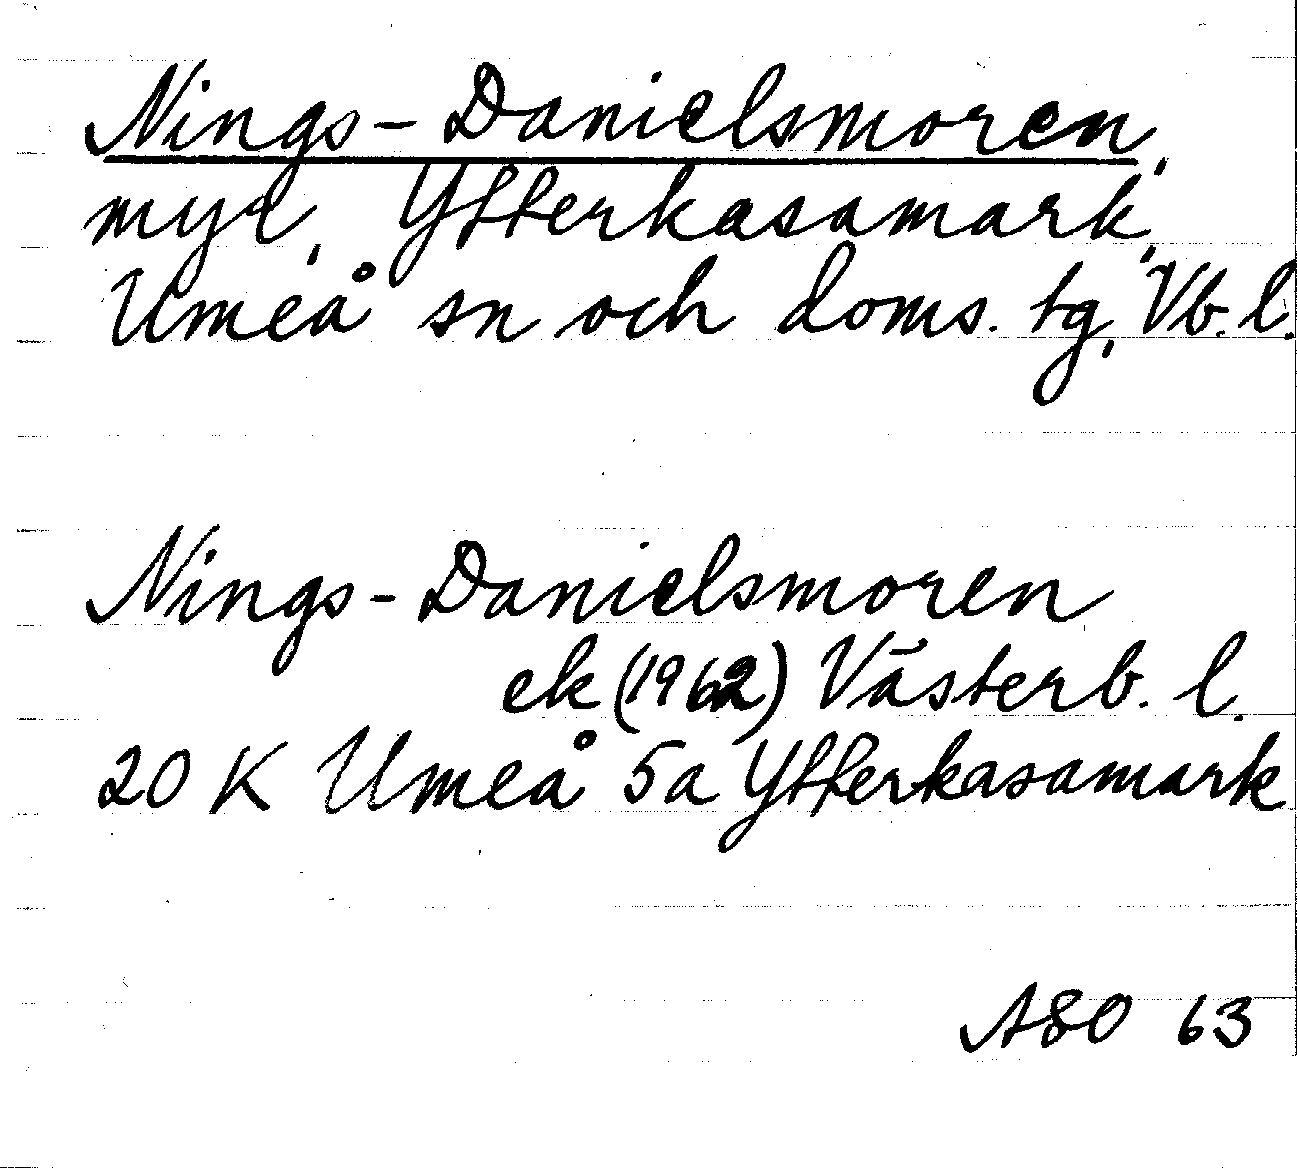 Nings-Danielsmoren,
myr, Ytterkasamark,
Umeå sn och doms. tg, Vb. l.
Nings-Danielsmoren
ek (1962) Västerb. l.
20 K Umeå 5a Ytterkasamark
ASO 63